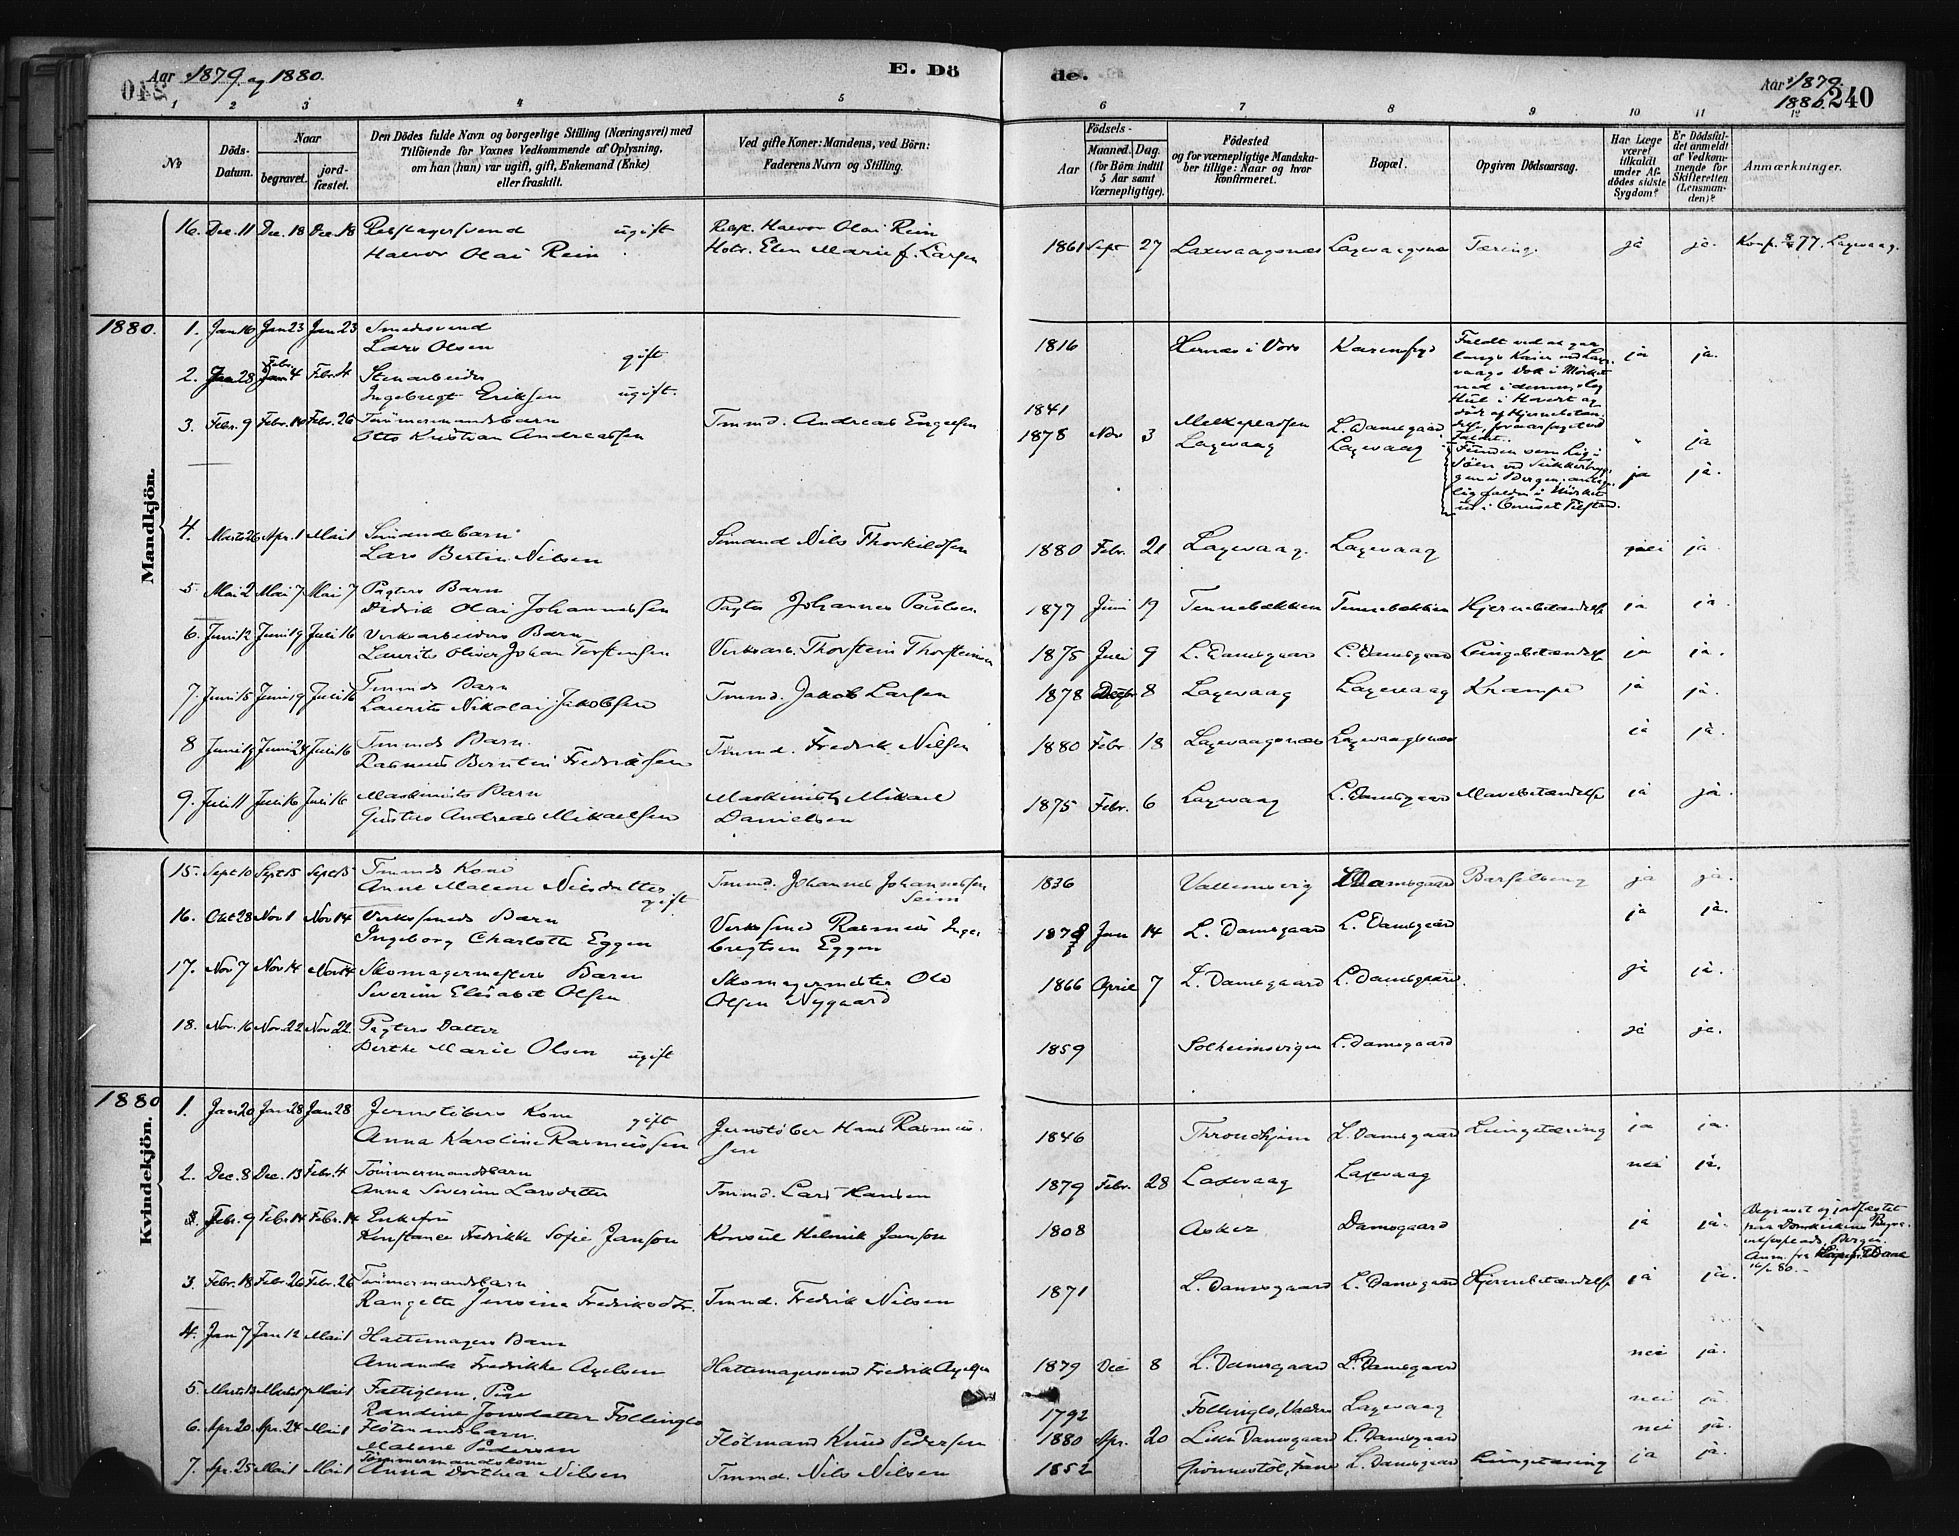 Aar 1879 og 1880.
E. Dö
de.
Aar 1879
1880. 240
1 2 3 4 5 6 7 8 9 10 11 12
No
Döds-Datum.
Naar
begravet.
jordfæstet.
Den Dödes fulde Navn og borgerlige Stilling (Næringsvei) med
Tilföiende for Voxnes Vedkommende af Oplysning,
om han (hun) var ugift, gift, Enkemand (Enke)
eller fraskilt.
Ved gifte Koner: Mandens, ved Börn:
Faderens Navn og Stilling.
Födsels-
Aar
Maaned. Dag.
(for Börn indtil
5 Aar samt
Værnepligtige).
Födested
og for værnepligtige Mandska-
ber tillige: Naar og hvor
konfirmeret.
Bopæl.
Opgiven Dödsaarsag.
Har Læge
været
tilkaldt
under Af-
dödes sidste
Sygdom?
Er Dödsfal-
det anmeldt
af Vedkom-
mende for
Skifteretten
(Lensman-
den)?
Anmærkninger.
Mandkjön.
16. Dec. 11 Dec. 18 Dec. 18 Rebslagersvend ugift
Halvor Olai Rein
Rebsl. Halvor Olai Rein
Hstr. Elen Marie f. Larsen
1861 Sept 27 Laxevaagsnæs Laxevaagsnæs Tæring. ja ja. Konf. 77. Laxevaag.
1880.
1. Jan 16 Jan 23 Jan 23 Smedesvend
Lars Olsen gift
1816 Hernæs i Vors ja ja.
Faldt ved at gaa
langs Kaien ved Laxe-
vaags Dok i Mörket
ned i denne, slog
Hul i Hovedet og
döde af Hjernebetæn-
delse, foraarsaget ved
Faldet.
2. Jan 28 Febr. 4 Febr. 4 Stenarbeider
Ingebregt Eriksen ugift.
1841 Melkepladsen L. Damsgaard ja
Funden som Lig i
Söen ved Sukkerbryg-
gen i Bergen, antage-
lig falden i Mörket
ud i beruset Tilstand.
3. Febr. 9 Febr. 14 Febr. 26 Tömmermandsbarn
Otto Kristian Andreassen
Tmmd. Andreas Engelsen
1878 Nov 3 Laxevaag Laxevaag ja ja.
4. Marts 26 Apr. 1 Mai 1 Sömandsbarn
Lars Bertin Nilsen
Sömand Nils Thorkildsen
1880 Febr. 21 Laxevaag. Laxevaag nei ja
5. Mai 2 Mai 7 Mai 7 Pagters Barn
Didrik Olai Johannessen
Pagter Johannes Paulsen
1877 Juni 19 Tennebækken Tennebækken Hjernebetændelse ja ja.
6. Juni 12 Juni 19 Juli 16 Verksarbeiders Barn
Laurits Oliver Johan Torstensen
Verksarb. Thorstein Thorsteinsen
1875 Juli 9 L. Damsgaard L. Damsgaard Lungebetændelse ja ja.
7. Juni 15 Juni 19 Juli 16 Tmmds Barn
Laurits Nikolai Jakobsen
Tmmd. Jakob Larsen
1878 8 Laxevaag Laxevaag Krampe ja ja.
8 Juni 19 Juni 24 Juli 16 Tmmds Barn.
Rasmus Berntin Fredriksen
Tmmd. Fredrik Nilsen
1880 Febr 18 Laxevaagsnæs Laxevaagsnæs ja ja.
9. Juli 11 Juli 16 Juli 16 Maskinists Barn
Gustav Andreas Mikaelsen
Maskinist Mikael
Danielsen
1875 Febr. 6 Laxevaag L. Damsgaard Mavebetændelse ja ja.
Kvindekjön.
15. Sept 10 Sept 15 Sept 15 Tmmds Kone
Anne Malene Nilsdatter gift
Tmmd. Johannes Johannessen
Seim
1836 Vallemsvig L. Damsgaard Barselseng ja ja.
16. Okt 28 Nov 1 Nov 14 Verksmeds Barn
Ingeborg Charlotte Eggen
Verksmed Rasmus Inge-
bregtsen Eggen
Jan 14 L. Damsgaard L. Damsgaard ja ja.
17. Nov 7 Nov 14 Nov 14 Skomagermesters Barn
Severine Elisabet Olsen
Skomagermester Ole
Olsen Nygaard
1866 April 7 L. Damsgaard L. Damsgaard. ja ja.
18. Nov. 16 Nov. 22 Nov 22. Pagters Datter
Berthe Marie Olsen ugift
1859 Solheimsvigen L. Damsgaard ja ja.
1880
1. Jan 20 Jan 28 Jan 28 Jernstöbers Kone gift
Anna Karoline Rasmussen
Jernstöber Hans Rasmus-
sen
1846 Throndhjem L. Damsgaard Lungetæring ja ja.
2. Dec. 8 Dec. 13 Febr. 4 Tömmermandsbarn
Anna Severine Larsdatter
Tmmd. Lars Hansen
1879 Febr. 28 Laxevaag Laxevaag nei ja.
Febr. 9 Febr 14 Febr. 14 Enkefru
Konstance Fredrikke Sofie Janson
Konsul Helmik Janson
1808 Asker Damsgaard ja ja.
Begravet og jordfæstet
paa Domkirkens Begra-
velsesplads, Bergen.
80.
3. Febr. 18 Febr. 26 Febr. 26 Tömmermandsbarn
Rangele Jensine Fredriksdtr.
Tmmd. Fredrik Nilsen
1871 L. Damsgaard L. Damsgaard Hjernebetændelse ja ja.
4. Jan 7 Jan 12 Mai 1 Hattemagers Barn
Amanda Fredrikke Axelsen
Hattemagersvend Fredrik Axelsen
1879 Dec 8 L. Damsgaard L. Damsgaard nei ja.
5. Marts 13 Marts 17 Mai 1 Fattiglem, Pige
Randine Jonsdatter Follinglo
1792 Follinglo, Valders Laxevaag nei ja
6 Apr. 20 Apr. 24 Mai 1 Flötmandsbarn.
Malene Pedersen
Flötmand Knud Pedersen
1880 Apr. 20 Lille Damsgaard L. Damsgaard nei ja.
7. Apr. 25 Mai 1 Mai 1 Tömmermandskone
Anna Dorthea Nilsen
Tmmd. Nils Nilsen
1852 Grönnestöl, Fane L. Damsgaard Lungetæring ja ja.